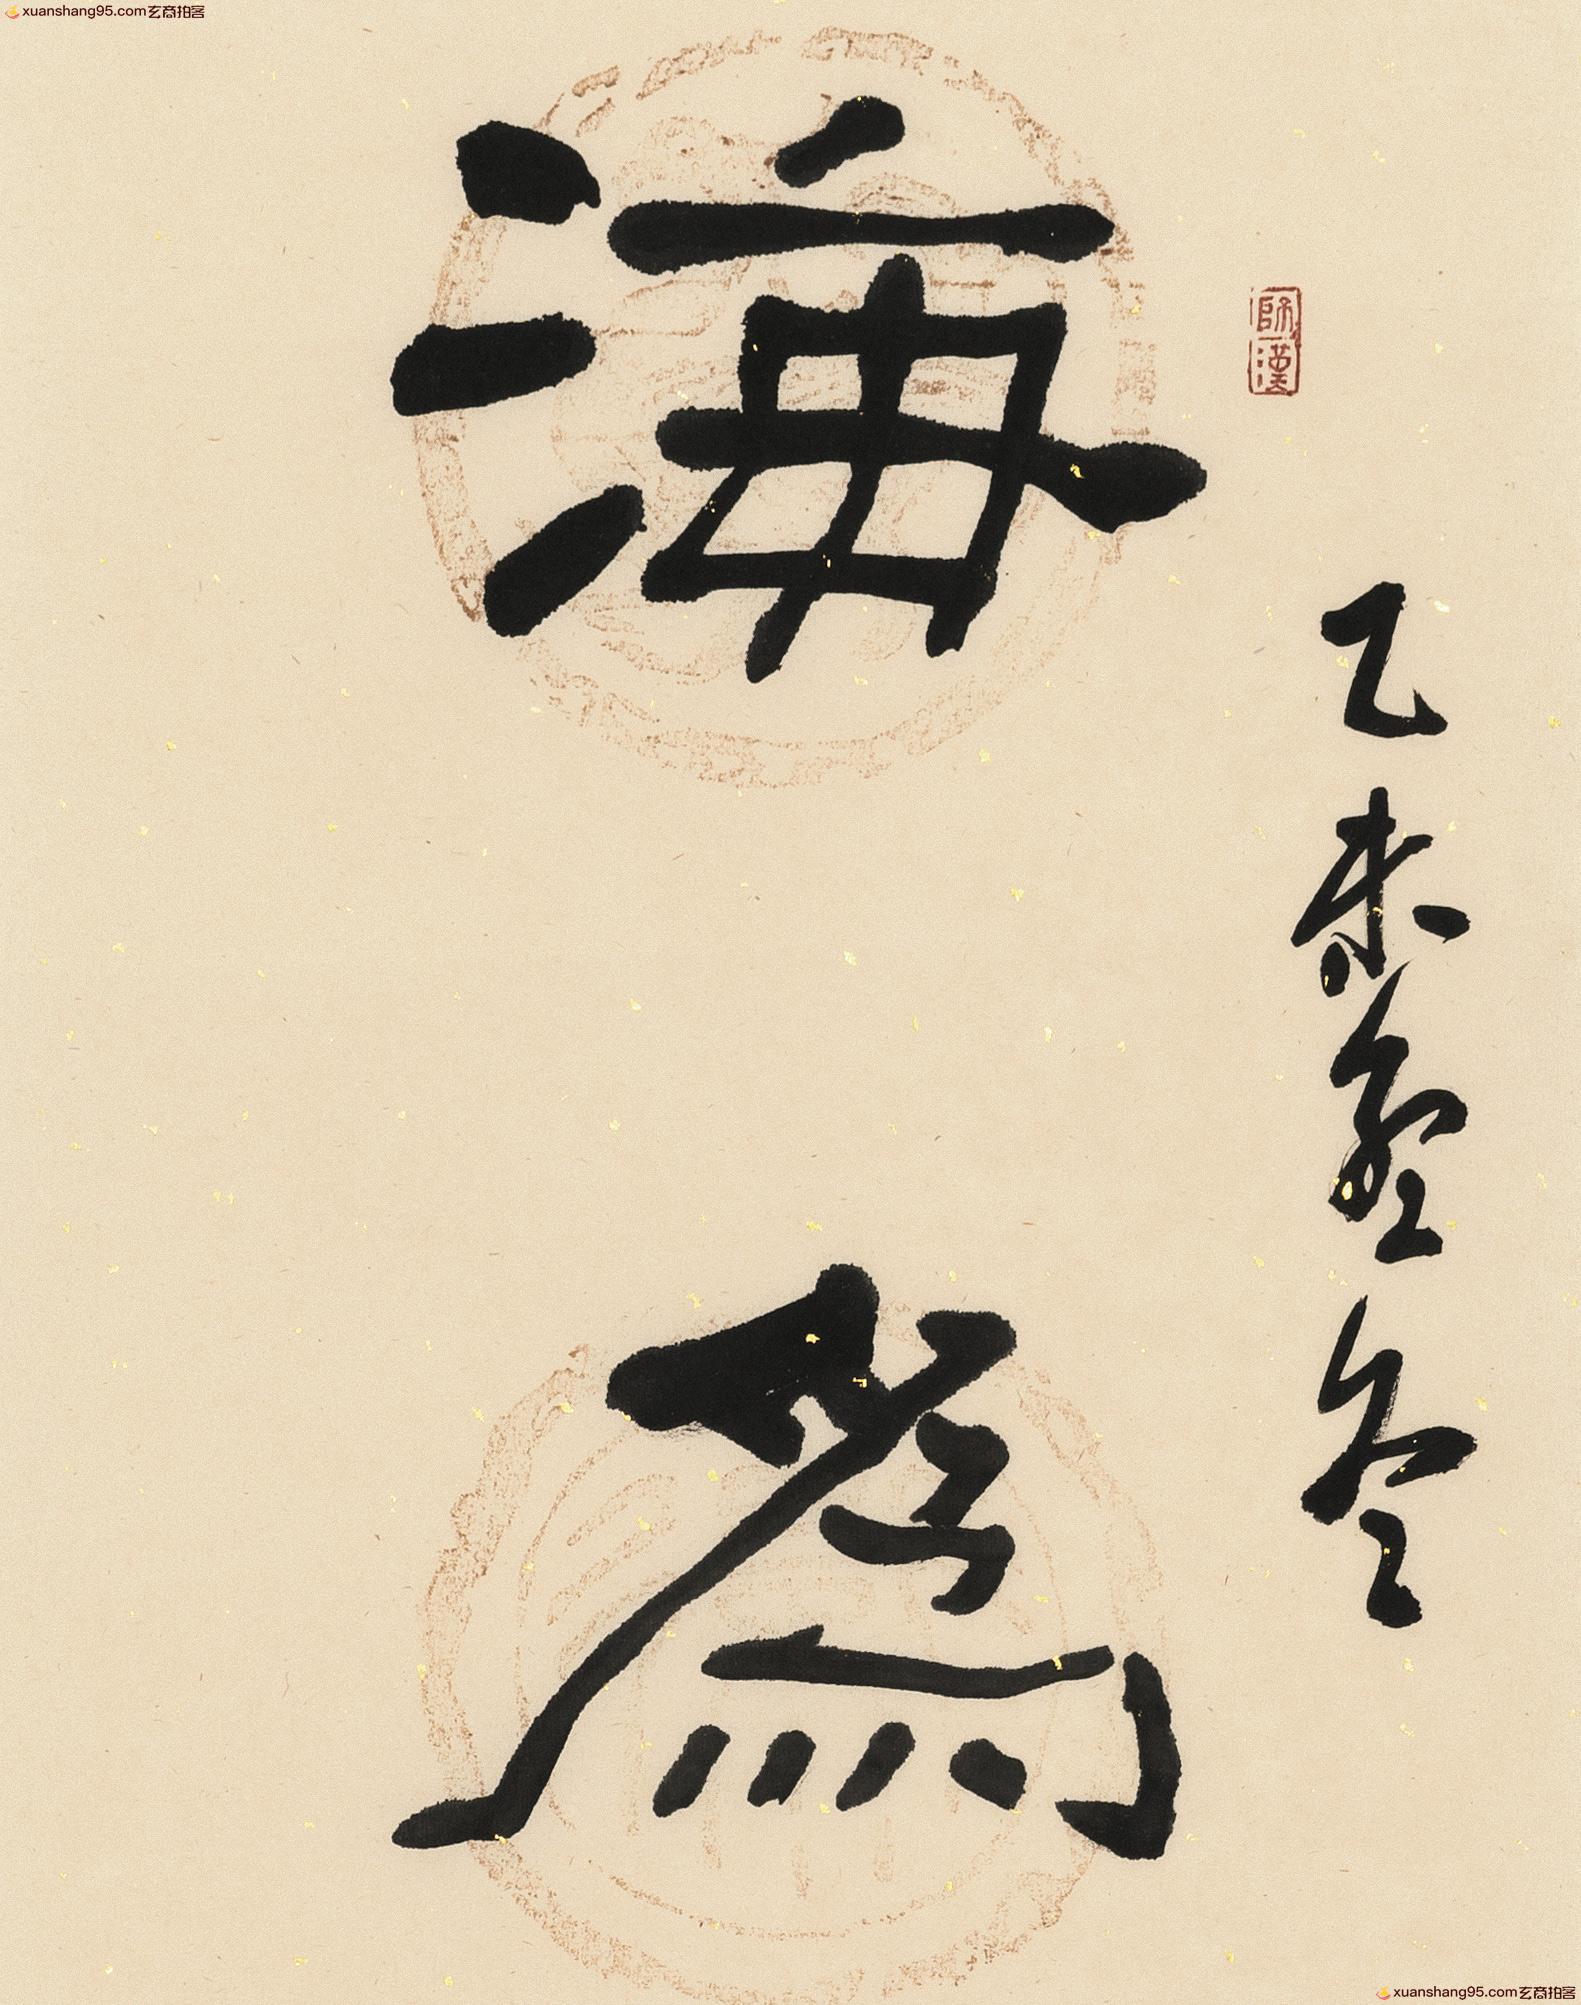 xuanshang95.com玄商拍客
乙未
海為
師漢
xuanshang95.com玄商拍客